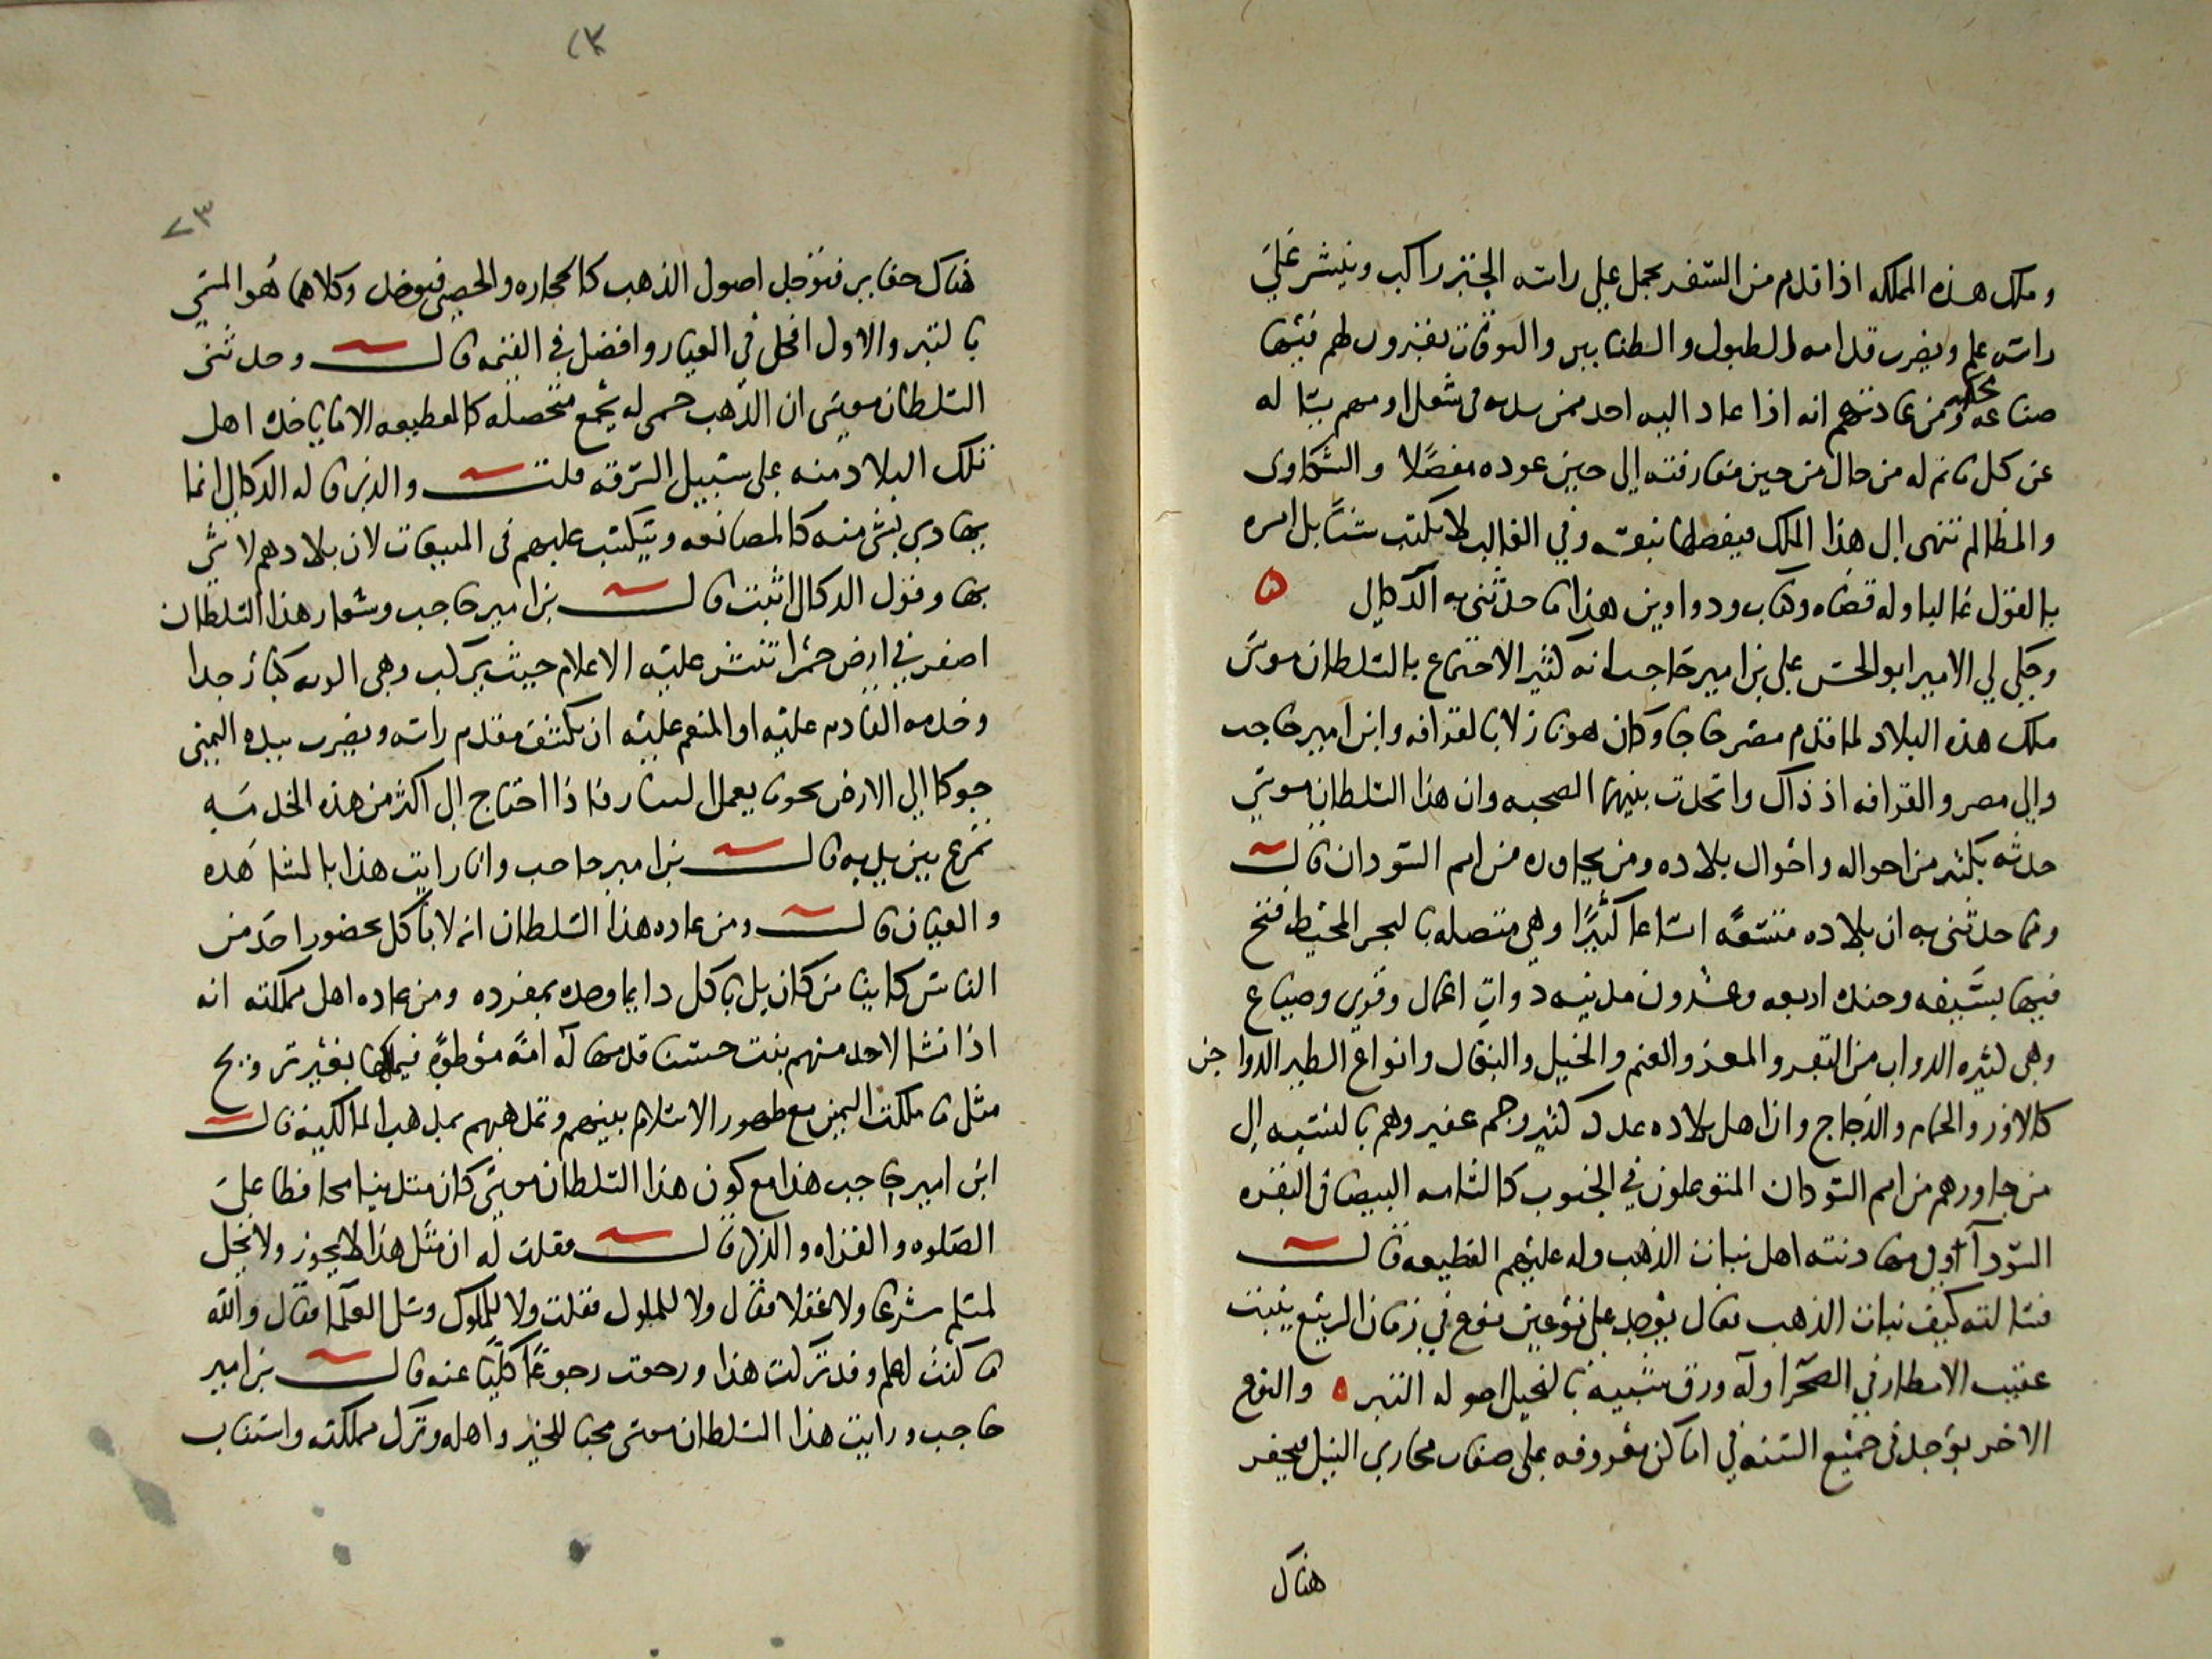 وملك هذه المملكه اذا قدم من السفر يحمل علي راسه الجتر راكب وينشر علي
راسه علم ويضرب قدامه الطبول والطنابير والبوقات بقرون لهم فيها
صناعه محكمه ومن عادتهم انه اذا عاد اليه احد ممن بيده في شغل او مهم يساله
عن كل ما تم له من حال من حين مفارقته الي حين عوده مفصلا والشكاوى
والمظالم تنهى الى هذا الملك فيفصلها بنفسه وفي الغالب لا يكتب شيا بل امره
بالقول غالبا وله قضاه وكتاب ودواوين هذا ما حدثني به الدكالي ه
وحكي لي الامير ابو الحسن علي بن امير حاجب انه كثير الاجتماع بالسلطان موسى
ملك هذه البلاد لما قدم مصر حاجا وكان هو نازلا بالقرافه وابن امير حاجب
والي مصر والقرافه اذ ذاك واتحدت بينهما الصحبه وان هذا السلطان موسي
حدثه بكثير من احواله واحوال بلاده ومن يجاوره من امم السودان قال
ومما حدثني به ان بلاده متسعه اتساعا كثيرا وهي متصله بالبحر المحيط فتح
فيها بسيفه وجنده اربعه وعشرون مدينه ذوات اعمال وقري وضياع
وهي كثيره الدواب من البقر والمعز والغنم والخيل والبغال وانواع الطير الدواجن
كالاوز والحمام والدجاج وان اهل بلاده عدد كثير وجم غفير وهم بالنسبه الى
من جاورهم من امم السودان المتوغلون في الجنوب كالشامه البيضا في البقره
السودآ وفي مهادنته اهل نبات الذهب وله عليهم القطيعه قال
فسالته كيف نبات الذهب فقال يوجد على نوعين نوع في زمان الربيع ينبت
عقيب الامطار في الصحرا وله ورق شبيه بالنجيل اصوله التبر ه والنوع
الاخر يوجد في جميع السنه في اماكن معروفه على ضفاف مجاري النيل فيحفر
هناك
٢٣
٧٣
هناك حفاير فتوجد اصول الذهب كالحجاره والحصى فيوخذ وكلاهما هو المسمى
بالتبر والاول افحل في العيار وافضل في القيمه قال وحدثني
السلطان موسى ان الذهب حمى له يجمع متحصله كالقطيعه الا ما ياخذه اهل
تلك البلاد منه على سبيل السرقه قلت والذي قاله الدكالي انما
يهادي بشي منه كالمصانعه ويتكسب عليهم في المبيعات لان بلادهم لا شي
بها وقول الدكالي اثبت قال بن امير حاجب وشعار هذا السلطان
اصفر في ارض حمرا تنشر عليه الاعلام حيث يركب وهي الويه كبار جدا
وخدمه القادم عليه او المنعم عليه ان يكشف مقدم راسه ويضرب بيده اليمنى
جوكا الي الارض نحو ما يعمل التتار فاذا احتاج الى اكثر من هذه الخدمه
تمرغ بين يديه قال بن امير حاجب وانا رايت هذا بالمشاهده
والعيان قال ومن عاده هذا السلطان انه لا ياكل بحضور احد من
الناس كاينا من كان بل ياكل دايما وحده بمفرده ومن عاده اهل مملكته انه
اذا نشا لاحد منهم بنت حسنا قدمها له امه موطوه فيملكها بغير تزويج
مثل ما ملكت اليمين مع ظهور الاسلام بينهم وتمذهبهم بمذهب المالكيه قال
ابن امير حاجب هذا مع كون هذا السلطان موسى كان متدينا محافظا على
الصلوه والقراه والذكر قال فقلت له ان مثل هذا لا يجوز ولا يحل
لمسلم شرعا ولا عقلا فقال ولا للملوك فقلت ولا للملوك وسل العلما فقال والله
ما كنت اعلم وقد تركت هذا ورجعت رجوعا كليا عنه قال بن امير
حاجب ورايت هذا السلطان موسى محبا للخير واهله وترك مملكته واستناب